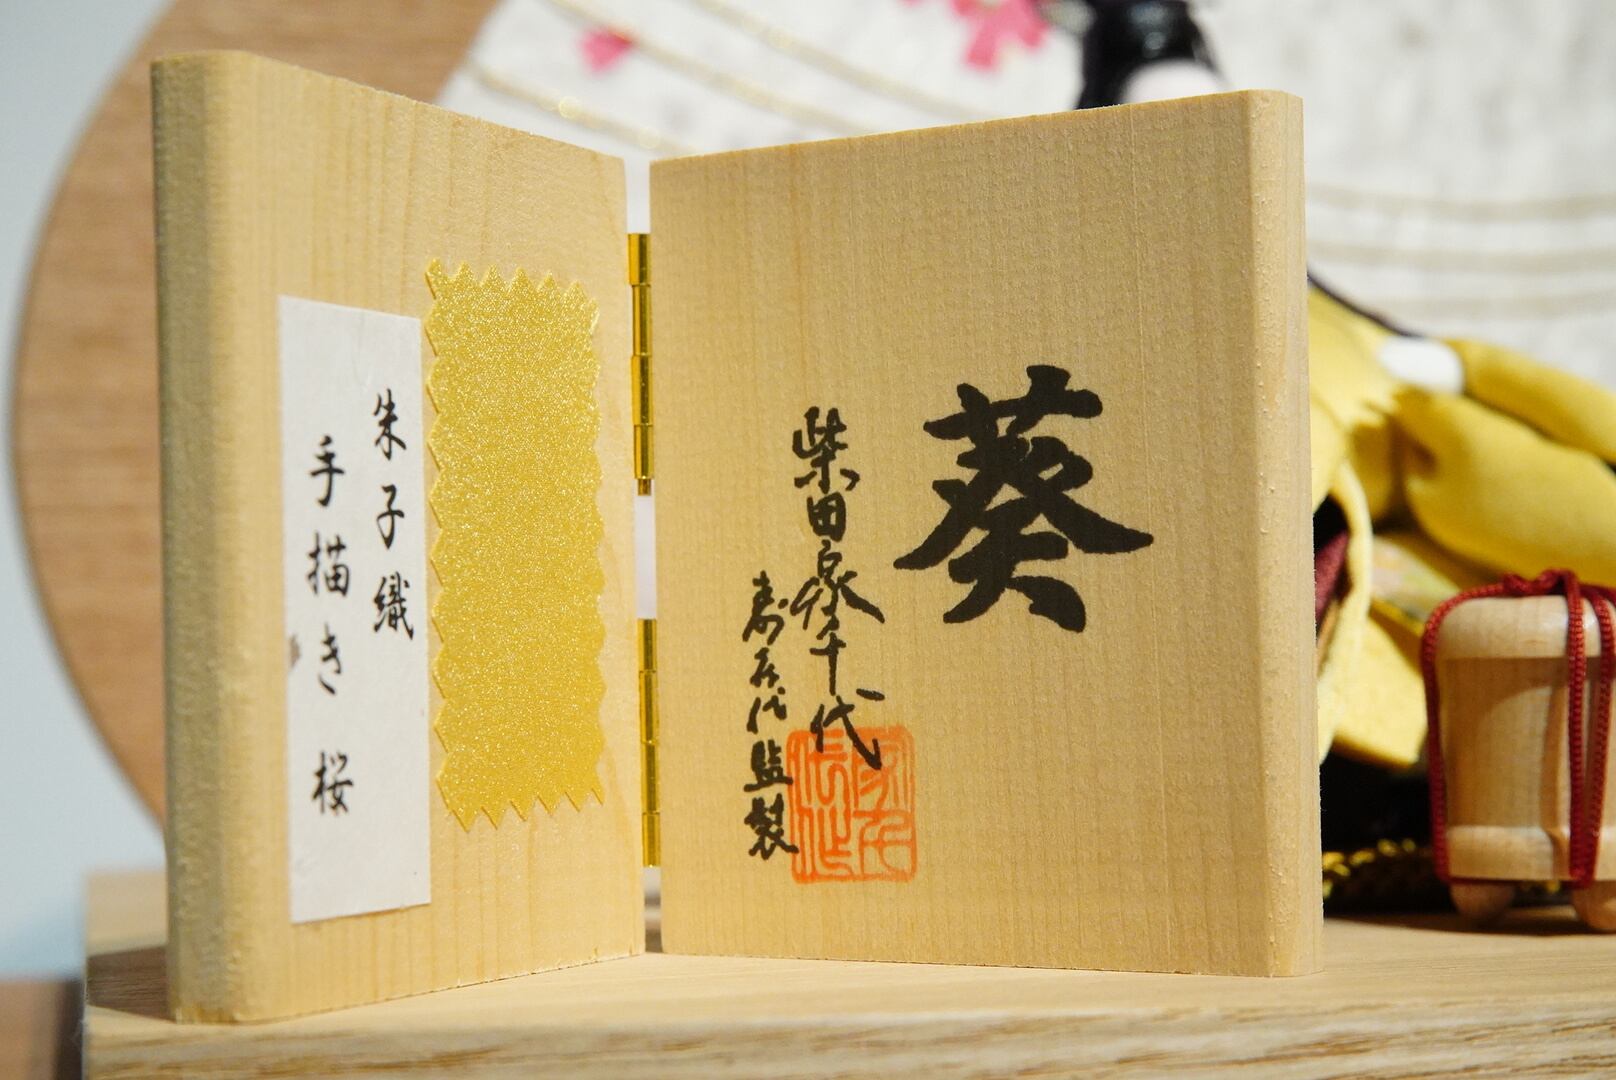 葵
柴田家千代
寿石代監製
朱子織
手描き 桜